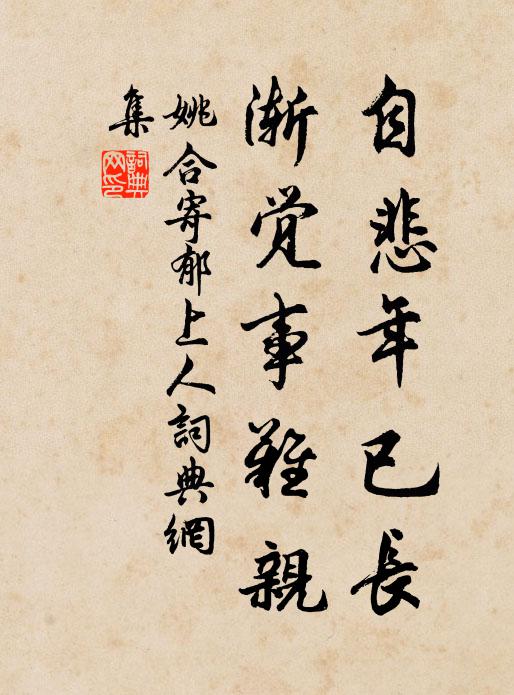 自悲年已長
漸覺事難親
姚合寄郁上人詞典網
集
詞典
网印